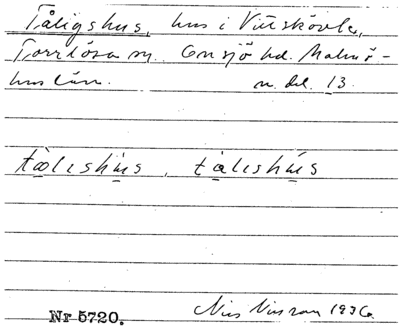 Tåligshus, hus i Vittskövle,
Torrlösa sn. Onsjö hd. Malmö-
hus län. n. del. 13.
tålishus, tålishus
Nr 5720. Nils Nilsson 1936.